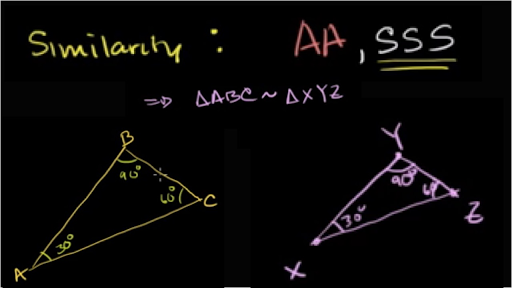 Similarity : AA, SSS
⇒ ΔABC ~ ΔXYZ
B
90°
60°
C
30°
A
Y
90°
60
Z
30°
X